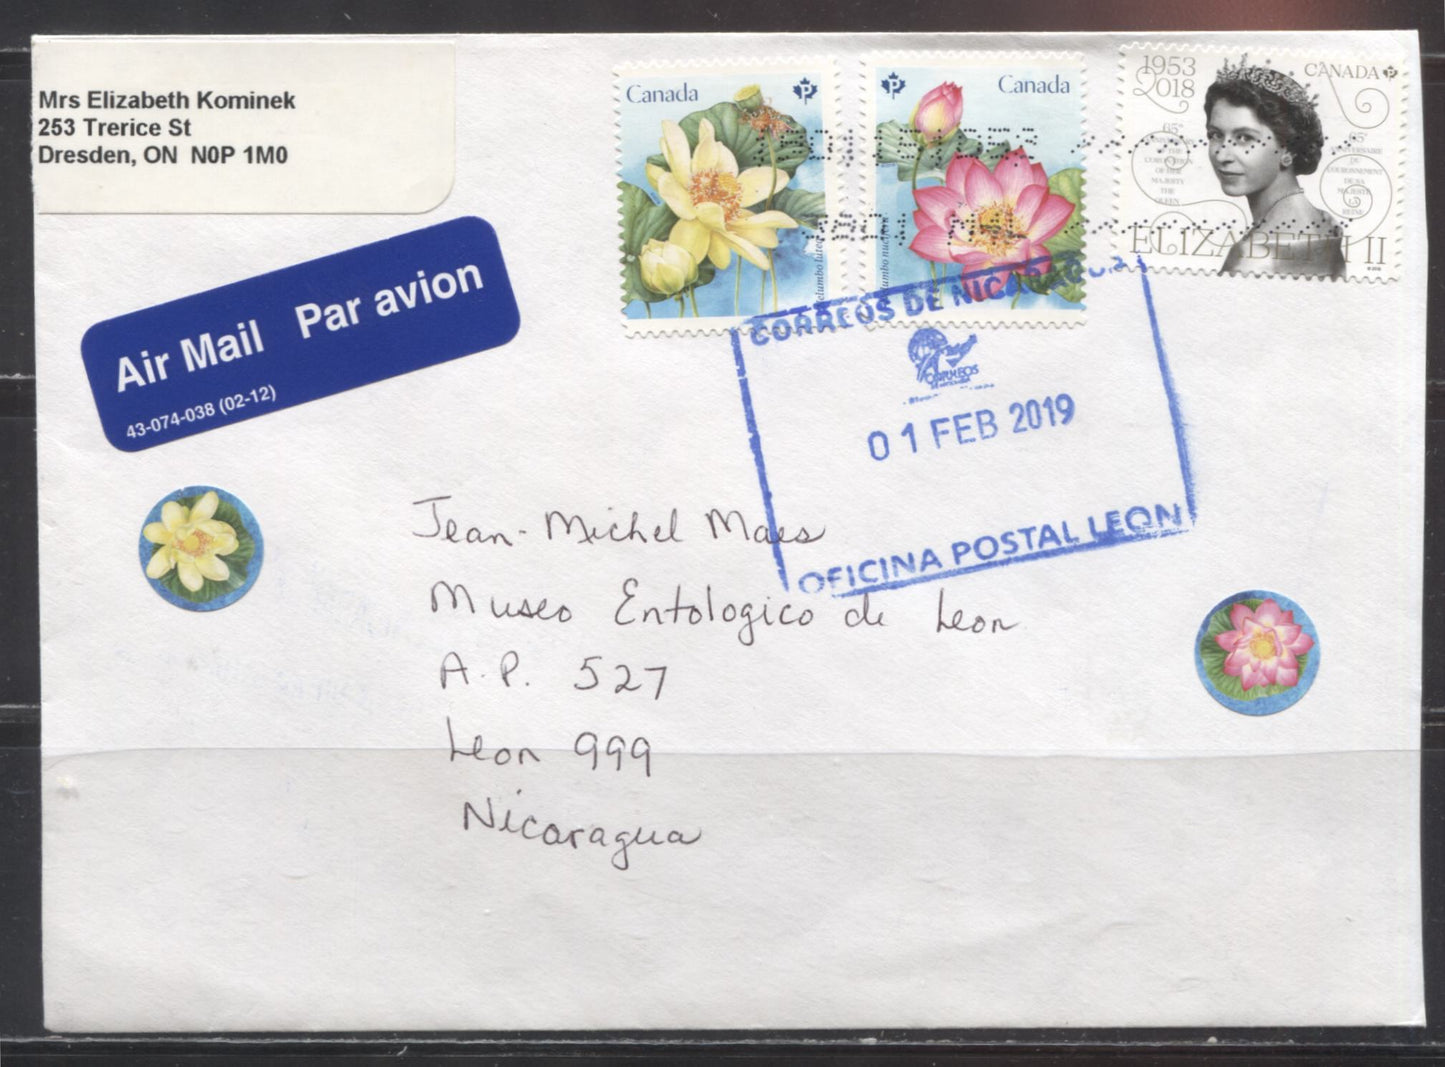 Mrs Elizabeth Kominek
253 Trerice St
Dresden, ON N0P 1M0
Air Mail Par avion
43-074-038 (02-12)
Canada P
P Canada
1953
2018
CANADA P
65th
OF THE
CORONATION
OF HER
MAJESTY
THE
QUEEN
65e
DU
COURONNEMENT
DE SA
MAJESTÉ
REINE
ELIZABETH II
CORREOS DE NICARAGUA
CORREOS
01 FEB 2019
OFICINA POSTAL LEON
Jean-Michel Maes
Museo Entologico de Leon
A.P. 527
Leon 999
Nicaragua